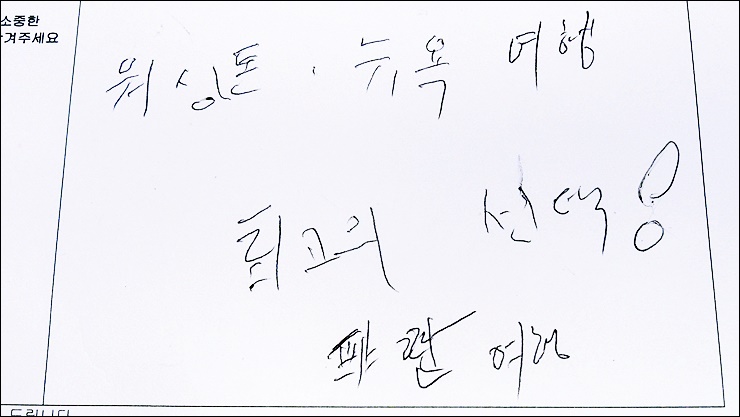 소중한
겨주세요
워싱톤 · 뉴욕 여행
최고의 선택!
파란 여행
드립니다